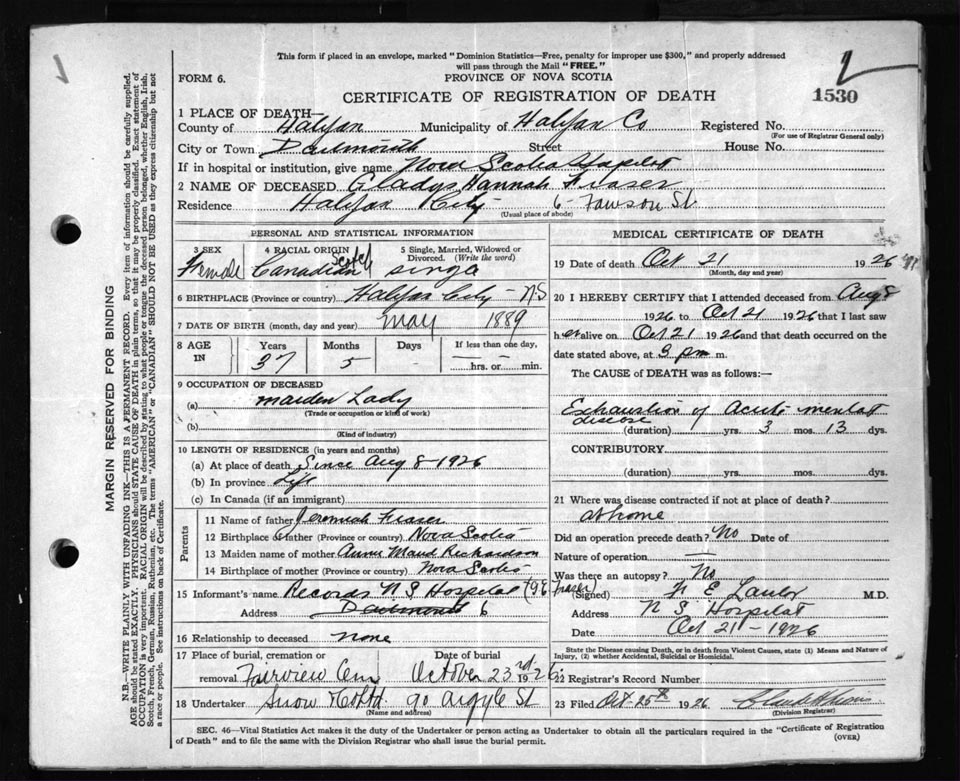 This form if placed in an envelope, marked "Dominion Statistics—Free, penalty for improper use $300," and properly addressed
will pass through the Mail "FREE."
FORM 6.
PROVINCE OF NOVA SCOTIA
CERTIFICATE OF REGISTRATION OF DEATH
1530
1 PLACE OF DEATH—
County of Halifax Municipality of Halifax Co Registered No.
(For use of Registrar General only)
City or Town Dartmouth Street House No.
If in hospital or institution, give name Nova Scotia Hospital
2 NAME OF DECEASED Gladys Hannah Fraser
Residence Halifax City 6 St
(Usual place of abode)
PERSONAL AND STATISTICAL INFORMATION
3 SEX 4 RACIAL ORIGIN 5 Single, Married, Widowed or
Divorced. (Write the word)
Female Canadian Scotch single
6 BIRTHPLACE (Province or country) Halifax City - NS
7 DATE OF BIRTH (month, day and year) May 1889
8 AGE IN Years Months Days If less than one day,
37 5 hrs. or min.
9 OCCUPATION OF DECEASED
(a) maiden Lady
(Trade or occupation or kind of work)
(b)
(Kind of industry)
10 LENGTH OF RESIDENCE (in years and months)
(a) At place of death Since Aug 8-1926
(b) In province Life
(c) In Canada (if an immigrant)
Parents
11 Name of father Jeremiah Fraser
12 Birthplace of father (Province or country) Nova Scotia
13 Maiden name of mother Annie Maud Richardson
14 Birthplace of mother (Province or country) Nova Scotia
15 Informant's name Records N S Hospital
Address Dartmouth
16 Relationship to deceased none
17 Place of burial, cremation or removal Fairview Cem Date of burial October 23rd 1926
18 Undertaker Snow & Co Ltd 90 Argyle St
(Name and address)
MEDICAL CERTIFICATE OF DEATH
19 Date of death Oct 21 1926
(Month, day and year)
20 I HEREBY CERTIFY that I attended deceased from Aug 8
1926 to Oct 21 1926 that I last saw
her alive on Oct 21 1926 and that death occurred on the
date stated above, at 3 pm m.
The CAUSE of DEATH was as follows:—
Exhaustion of Acute mental
disease
(duration) yrs. 3 mos. 13 dys.
CONTRIBUTORY
(duration) yrs. mos. dys.
21 Where was disease contracted if not at place of death?
at home
Did an operation precede death? No Date of
Nature of operation
Was there an autopsy? No
(Signed) F E Lawlor M.D.
Address N S Hospital
Date Oct 21-1926
State the Disease causing Death, or in death from Violent Causes, state (1) Means and Nature of
Injury, (2) whether Accidental, Suicidal or Homicidal.
22 Registrar's Record Number
23 Filed Oct 25th 1926
(Division Registrar)
SEC. 46—Vital Statistics Act makes it the duty of the Undertaker or person acting as Undertaker to obtain all the particulars required in the "Certificate of Registration
of Death" and to file the same with the Division Registrar who shall issue the burial permit.
(OVER)
MARGIN RESERVED FOR BINDING
N.B.—WRITE PLAINLY WITH UNFADING INK—THIS IS A PERMANENT RECORD. Every item of information should be carefully supplied.
AGE should be stated EXACTLY. PHYSICIANS should STATE CAUSE OF DEATH in plain terms, so that it may be properly classified. Exact statement of
OCCUPATION is very important. RACIAL ORIGIN will be described by stating to what people or tongue the deceased person belonged, whether English, Irish,
Scotch, French, German, Russian, Ruthenian, etc. The terms "AMERICAN" or "CANADIAN" SHOULD NOT BE USED as they express citizenship but not
a race or people. See instructions on back of Certificate.